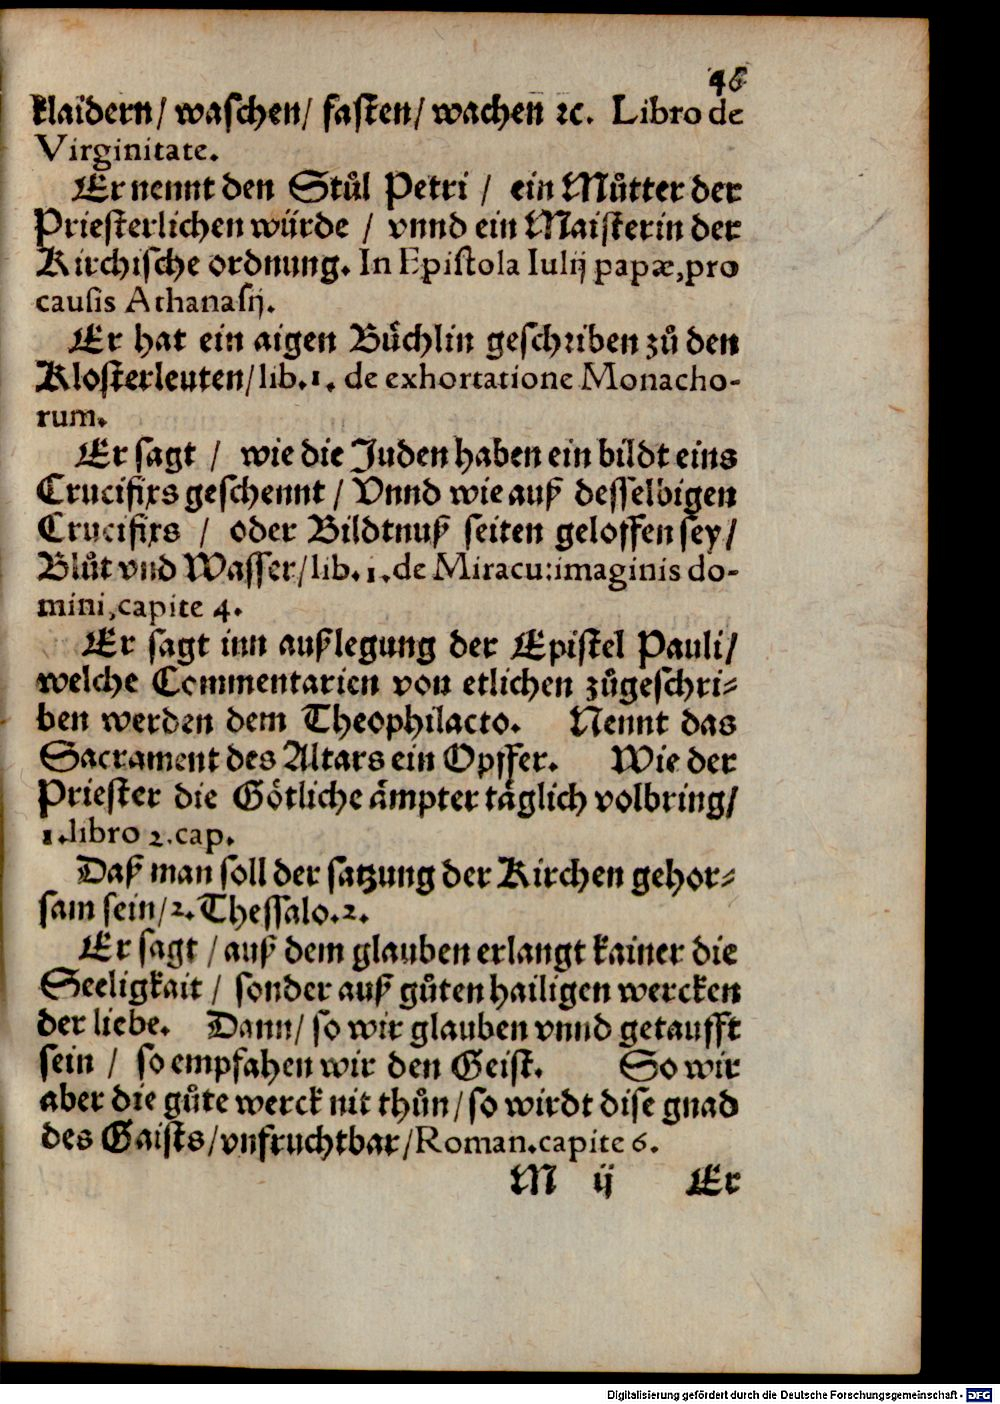 46
klaidern/ waschen/ fasten/ wachen ꝛc. Libro de
Virginitate.
Er nennt den Stůl Petri / ein Můtter der
Priesterlichen würde / vnnd ein Maisterin der
Kirchische ordnung. In Epistola Iulij papæ, pro
causis Athanasij.
Er hat ein aigen Bůchlin geschriben zů den
Klosterleuten/lib. 1. de exhortatione Monacho-
rum.
Er sagt / wie die Juden haben ein bildt eins
Crucifixs geschennt / Vnnd wie auß desselbigen
Crucifixs / oder Bildtnuß seiten geloffen sey/
Blůt vnd Wasser/lib. 1. de Miracu: imaginis do-
mini, capite 4.
Er sagt inn außlegung der Epistel Pauli/
welche Commentarien von etlichen zůgeschri-
ben werden dem Theophilacto. Nennt das
Sacrament des Altars ein Opffer. Wie der
Priester die Götliche åmpter täglich volbring/
1. libro 2. cap.
Daß man soll der satzung der Kirchen gehor-
sam sein/2. Thessalo. 2.
Er sagt / auß dem glauben erlangt kainer die
Seeligkait / sonder auß gůten hailigen wercken
der liebe. Dann/ so wir glauben vnnd getaufft
sein / so empfahen wir den Geist. So wir
aber die gůte werck nit thůn/ so wirdt dise gnad
des Gaists/vnfruchtbar/Roman. capite 6.
M ij Er
Digitalisierung gefördert durch die Deutsche Forschungsgemeinschaft - DFG